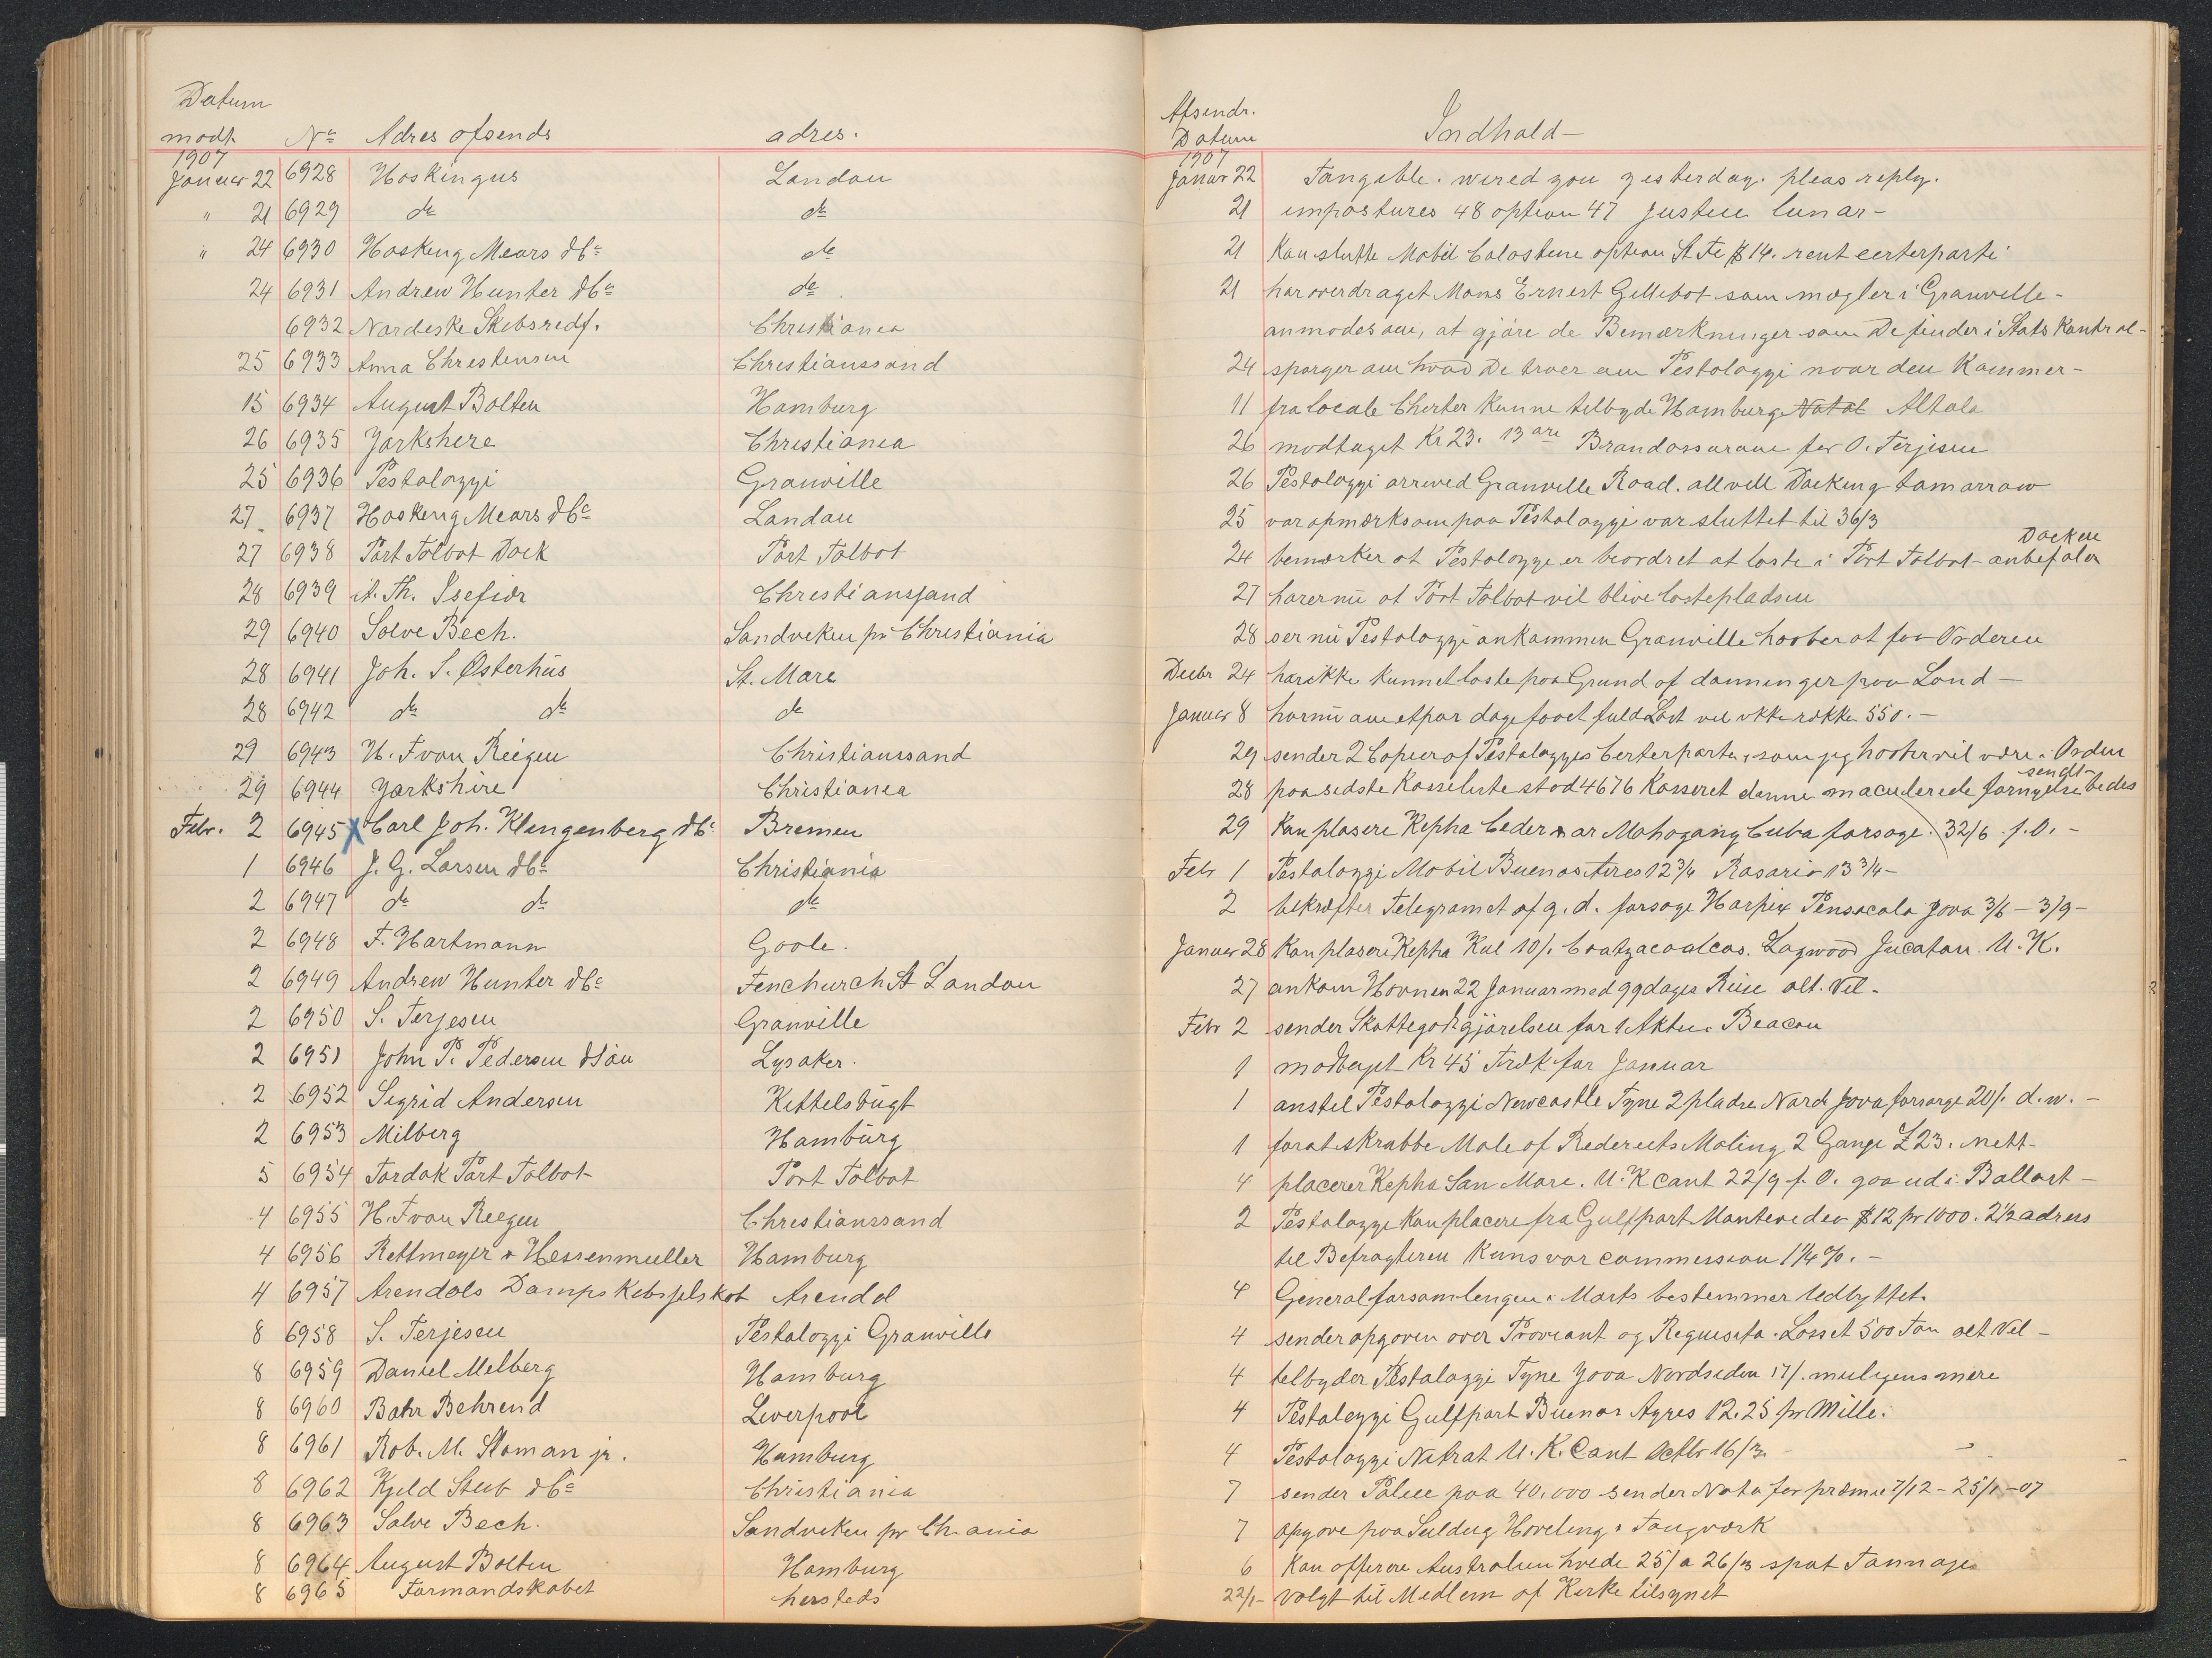 Datum
modt. No Adres afsends adres.
1907
Januar 22 6928 Hoskingus London
" 21 6929 do do
" 24 6930 Hosking Mears & Co do
24 6931 Andrew Hunter & Co do
6932 Nordiske Skibsredf. Christiania
25 6933 Anna Christensen Christianssand
15 6934 August Bolten Hamburg
26 6935 Yorkshere Christiania
25 6936 Pestalozzi Granville
27 6937 Hosking Mears & Co London
27 6938 Port Talbot Dock Port Talbot
28 6939 A. Th. Isefiær Christianssand
29 6940 Solve Bech. Sandviken pr Christiania
28 6941 Joh. S. Østerhus St. Marc
28 6942 do do do
29 6943 H. F van Reegen Christianssand
29 6944 Yorkshire Christiania
Febr. 2 6945 x Carl Joh. Klingenberg & Co Bremen
1 6946 J. G. Larsen & Co Christiania
2 6947 do do do
2 6948 F. Hartmann Goole.
2 6949 Andrew Hunter & Co Fenchurch St London
2 6950 S. Terjesen Granville
2 6951 John P. Pedersen & Søn Lysaker.
2 6952 Sigrid Andersen Kittelsbugt
2 6953 Milberg Hamburg
5 6954 Tordok Port Talbot Port Talbot
4 6955 H. F van Reegen Christianssand
4 6956 Rettmeyer & Hessenmuller Hamburg
4 6957 Arendals Dampskibsselskab Arendal
8 6958 S. Terjesen Pestalozzi Granville
8 6959 Daniel Milberg Hamburg
8 6960 Bahr Behrend Liverpool
8 6961 Rob. M. Sloman jr. Hamburg
8 6962 Kjeld Stub & Co Christiania
8 6963 Solve Bech. Sandviken pr Ch.ania
8 6964 August Bolten Hamburg
8 6965 Formandskabet hersteds
Afsendr.
Datum Indhald—
1907
Januar 22 Tangible. wired you yesterday. pleas reply.
21 impostures 48 option 47 justice lunar—
21 Kan slutte Mobil Calastine option St Fe $ 14. rent certerparti
21 har overdraget Mons Ernest Gillebot som mægler i Granville—
anmodes om, at gjøre de Bemærkninger som De finder i Stats Kontrol—
24 spørger om hvad De troer om Pestalozzi naar den Kommer—
11 fra locale Cherter kunne tilbyde Hamburg Natal Altata
26 modtaget Kr 23. 13 øre Brandassurance for O. Terjesen
26 Pestalozzi arrived Granville Road. all well Docking tomorrow
25 var opmærksom paa Pestalozzi var sluttet til 36/3
24 bemærker at Pestalozzi er beordret at laste i Port Talbot—anbefaler Docken
27 hører nu at Port Talbot vil blive lastepladsen
28 ser nu Pestalozzi ankommen Granville haaber at faa Orderen
Decbr 24 har ikke kunnet laste paa Grund af dønninger paa Land—
Januar 8 har nu om et par dage faaet fuld Last vil ikke række 550.—
29 sender 2 Copier af Pestalozzis Certerparti, som jeg haaber vil være i Orden
28 paa sidste Kasseliste stod 4676 Kasseret denne maculerede fornyelse bedes sendt—
29 Kan plasere Kepha Ceder or Mahogany Cuba forsøge. 32/6 f. O.—
Febr 1 Pestalozzi Mobil Buenos Aires 12 3/4 Rosario 13 3/4—
2 bekræfter Telegramet af g. d. forsøge Harpix Pensacola Java 3/6—3/9—
Januar 28 Kan plasere Kepha Kul 10/. Coatzacoalcos. Logwood Jucatan. U. K.
27 ankom Havnen 22 Januar med 99 dages Reise alt. Vel—
Febr 2 sender Skattegodtgjørelsen for 1 Aktie i Beacon
1 modtaget Kr 45 Træk for Januar
1 anstil Pestalozzi Newcastle Tyne 2 pladse Nord Java forsørge 20/. d. w.—
1 for at skrabbe Male af Rederiets Maling 2 Gange £ 23. nett—
4 placerer Kepha San Marc. U. K cont 22/9 f. O. gaa ud i Ballast—
2 Pestalozzi Kan placere fra Gulfport Montevideo $ 12 pr 1000. 2 1/2 adress
til Befragteren Kuns vor commission 1 1/4 %.—
4 Generalforsamlingen i Marts bestemmer Udbyttet.
4 sender opgaven over Proviant og Requisita. Losset 500 Ton alt Vel—
4 tilbyder Pestalozzi Tyne Java Nordsiden 17/. muligens mere
4 Pestalozzi Gulfport Buenos Ayres 12.25 pr Mille.
4 Pestalozzi Nitrat U. K. Cont Octbr 16/3.
7 sender Police paa 40.000 sender Nota for præmie 7/12—25/1—07
7 opgave paa Seildug Hoveling & Taugværk
6 Kan offerere Australien hvede 25/ a 26/3 spot Tonnage
22/1— valgt til Medlem af Kirke tilsynet